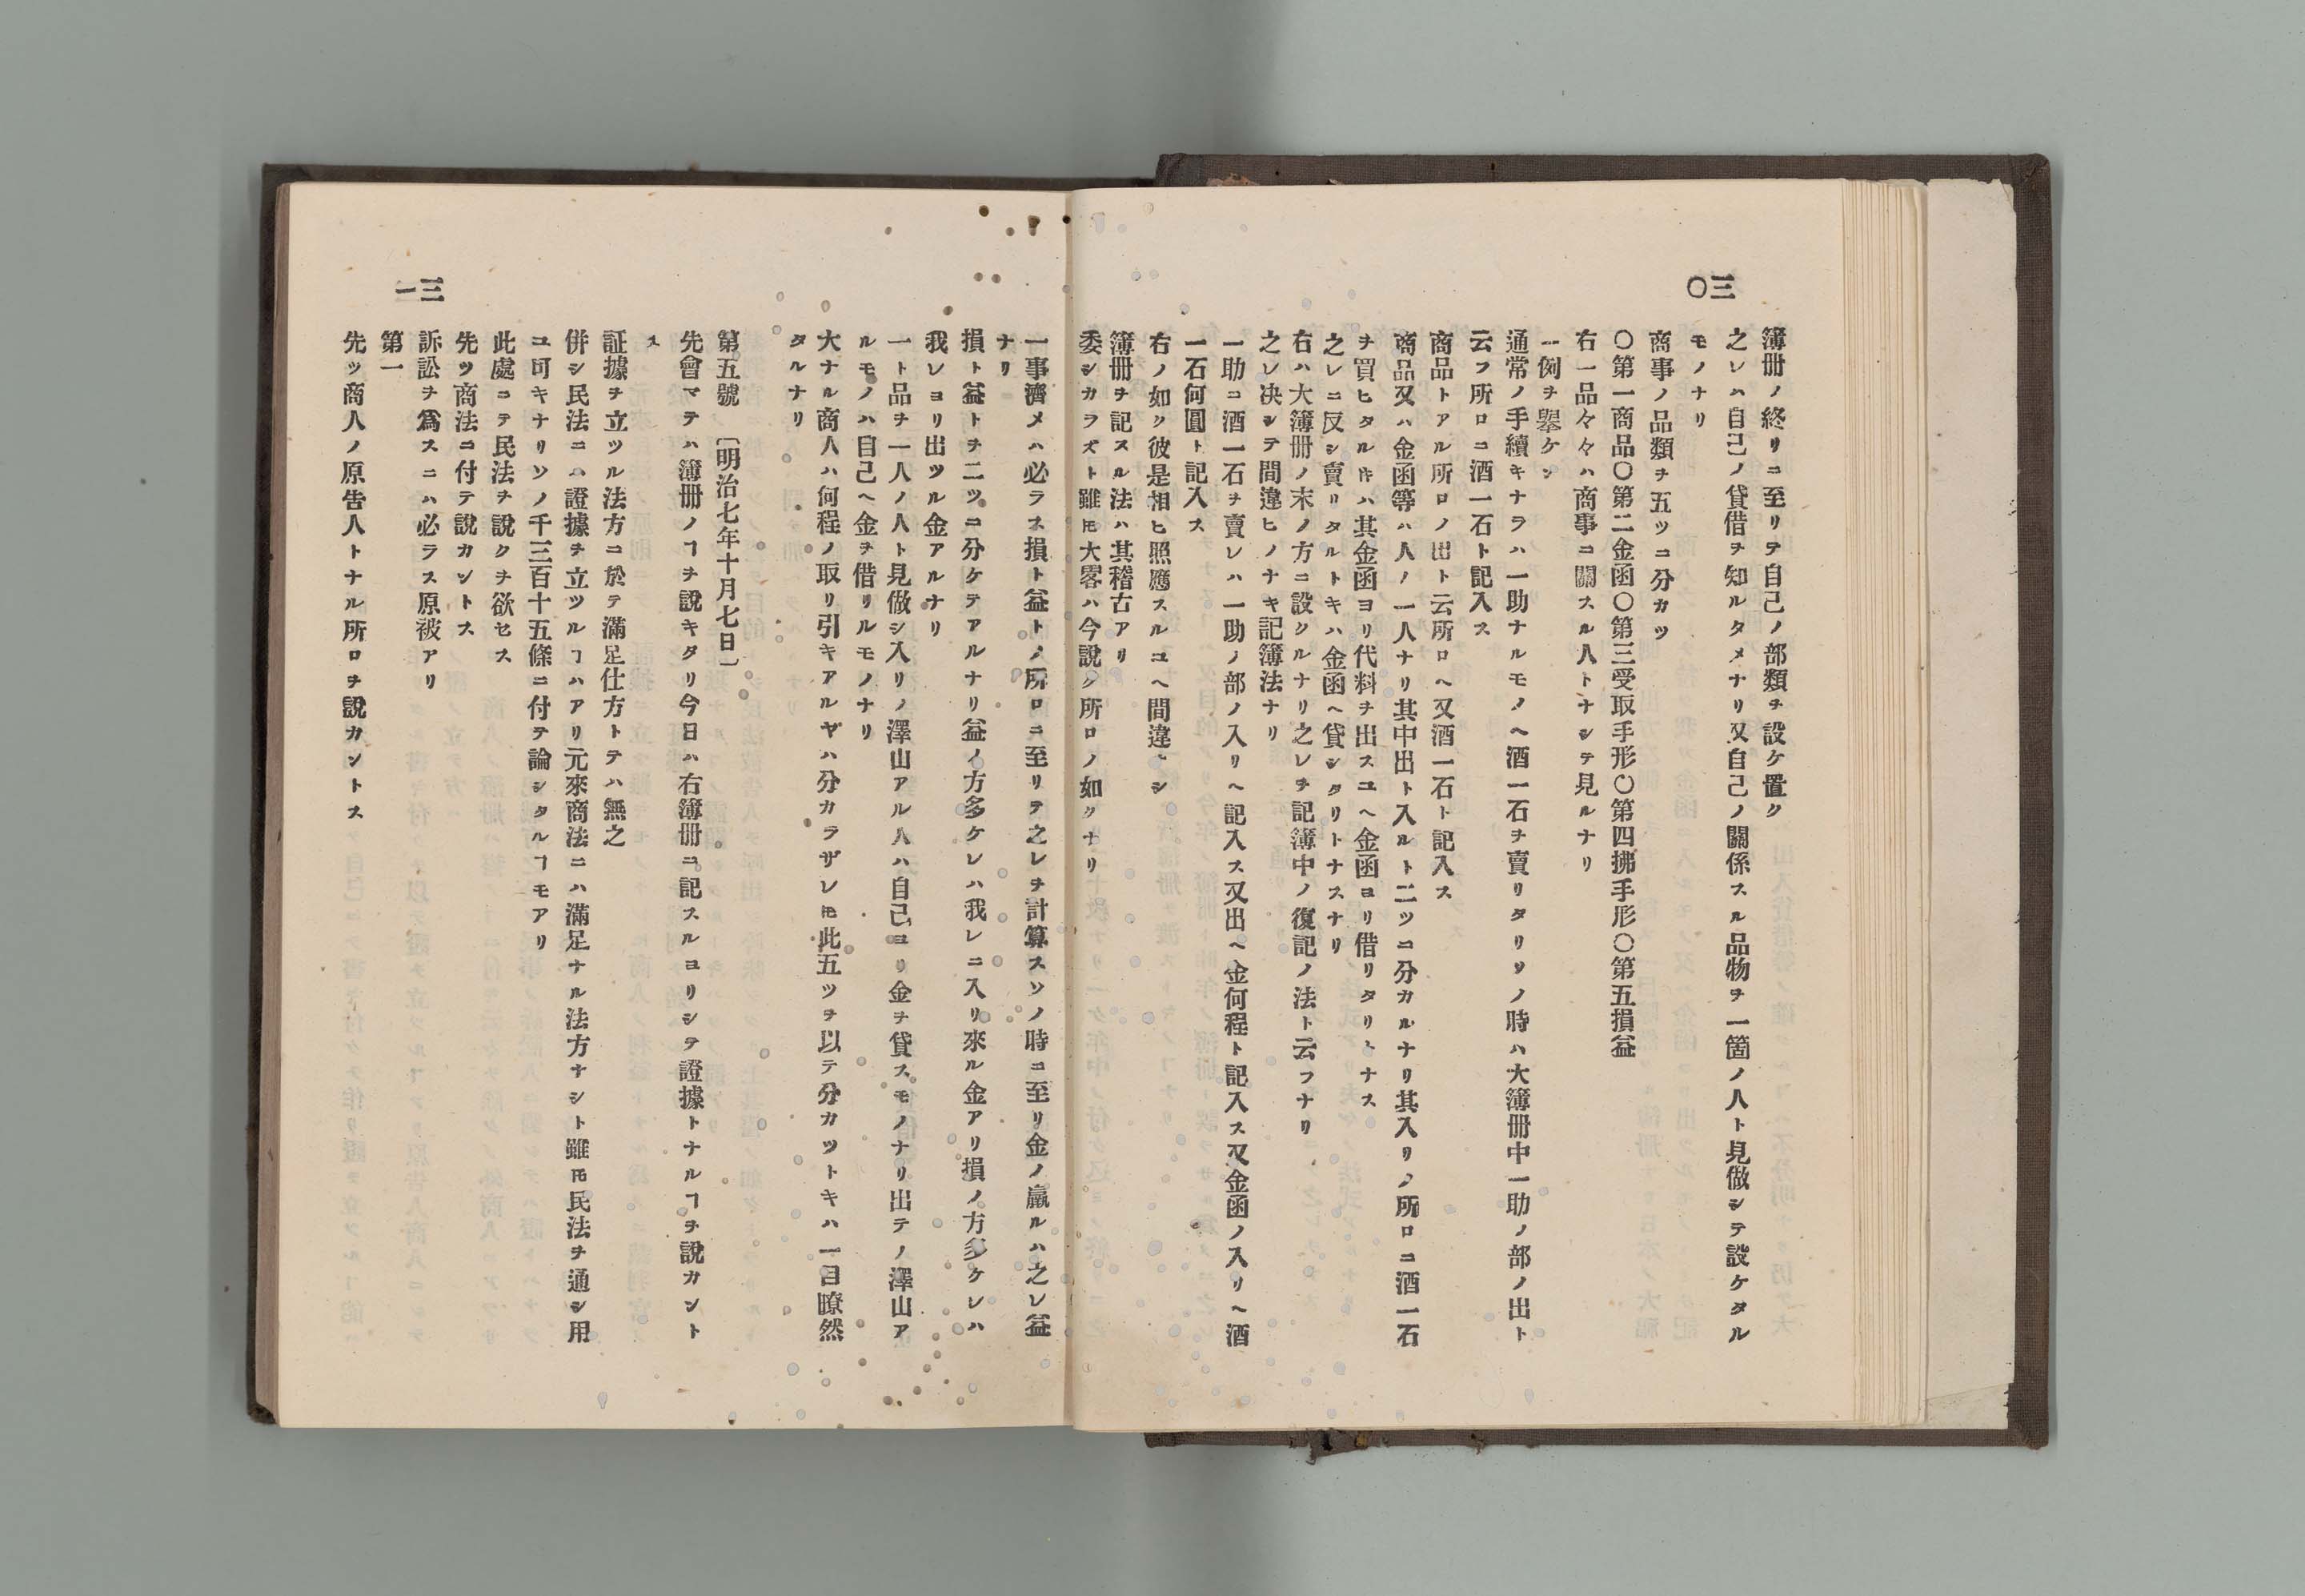 三〇
簿冊ノ終リニ至リテ自己ノ部類ヲ設ケ置ク
之レハ自己ノ貸借ヲ知ルタメナリ又自己ノ關係スル品物ヲ一箇ノ人ト見做シテ設ケタル
モノナリ
商事ノ品類ヲ五ツニ分カツ
〇第一商品〇第二金函〇第三受取手形〇第四拂手形〇第五損益
右一品々々ハ商事ニ關スル人トナシテ見ルナリ
一例ヲ擧ケン
通常ノ手續キナラハ一助ナルモノヘ酒一石ヲ賣リタリソノ時ハ大簿冊中一助ノ部ノ出ト
云フ所ロニ酒一石ト記入ス
商品トアル所ロノ出ト云所ロヘ又酒一石ト記入ス
商品又ハ金函等ハ人ノ一人ナリ其中出ト入ルト二ツニ分カルナリ其入リノ所ロニ酒一石
ヲ買ヒタル𪜈ハ其金函ヨリ代料ヲ出スユヘ金函ヨリ借リタリトナス
之レニ反シ賣リタルトキハ金函ヘ貸シタリトナスナリ
右ハ大簿冊ノ末ノ方ニ設クルナリ之レヲ記簿中ノ復記ノ法ト云フナリ
之レ决シテ間違ヒノナキ記簿法ナリ
一助ニ酒一石ヲ賣レハ一助ノ部ノ入リヘ記入ス又出ヘ金何程ト記入ス又金函ノ入リヘ酒
一石何圓ト記入ス
右ノ如ク彼是相ヒ照應スルユヘ間違ヒシ
簿冊ヲ記スル法ハ其稽古アリ
委シカラズト雖𪜈大畧ハ今説ク所ロノ如クナリ
一事濟メハ必ラス損ト益トノ所ロニ至リテ之レヲ計算スソノ時ニ至リ金ノ贏ルハ之レ益
ナリ
損ト益トヲ二ツニ分ケテアルナリ益ノ方多ケレハ我レニ入リ來ル金アリ損ノ方多ケレハ
我レヨリ出ツル金アルナリ
一ト品ヲ一人ノ人ト見做シ入リノ澤山アル人ハ自己ヨリ金ヲ貸スモノナリ出テノ澤山ア
ルモノハ自己ヘ金ヲ借リルモノナリ
大ナル商人ハ何程ノ取リ引キアルヤハ分カラザレ𪜈此五ツヲ以テ分カツトキハ一目瞭然
タルナリ
第五號 〔明治七年十月七日〕
先會マテハ簿冊ノヿヲ說キタリ今日ハ右簿冊ニ記スルヨリシテ證據トナルヿヲ說カント
ス
証據ヲ立ツル法方ニ於テ滿足仕方トテハ無之
併シ民法ニハ證據ヲ立ツルヿハアリ元來商法ニハ滿足ナル法方ナシト雖𪜈民法ヲ通シ用
ユ可キナリソノ千三百十五條ニ付テ論シタルヿモアリ
此處ニテ民法ヲ說クヲ欲セス
先ツ商法ニ付テ說カントス
訴訟ヲ爲スニハ必ラス原被アリ
第一
先ツ商人ノ原告人トナル所ロヲ說カントス
三一